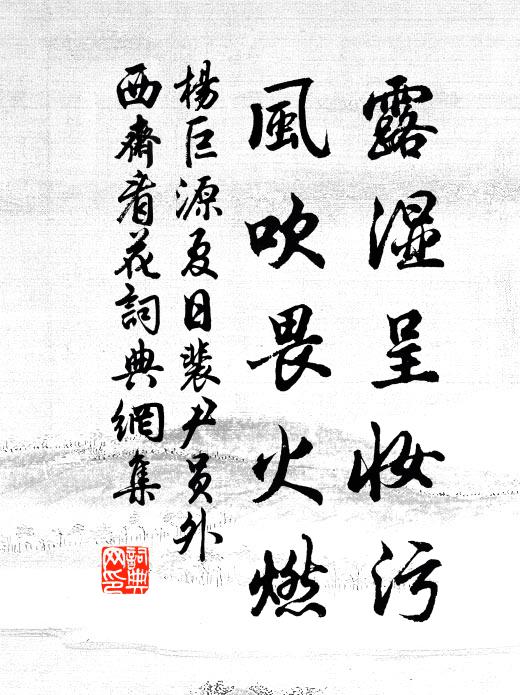 露湿呈妆污
風吹畏火燃
楊巨源夏日裴尹員外
西齋看花詞典網集
詞典
网印